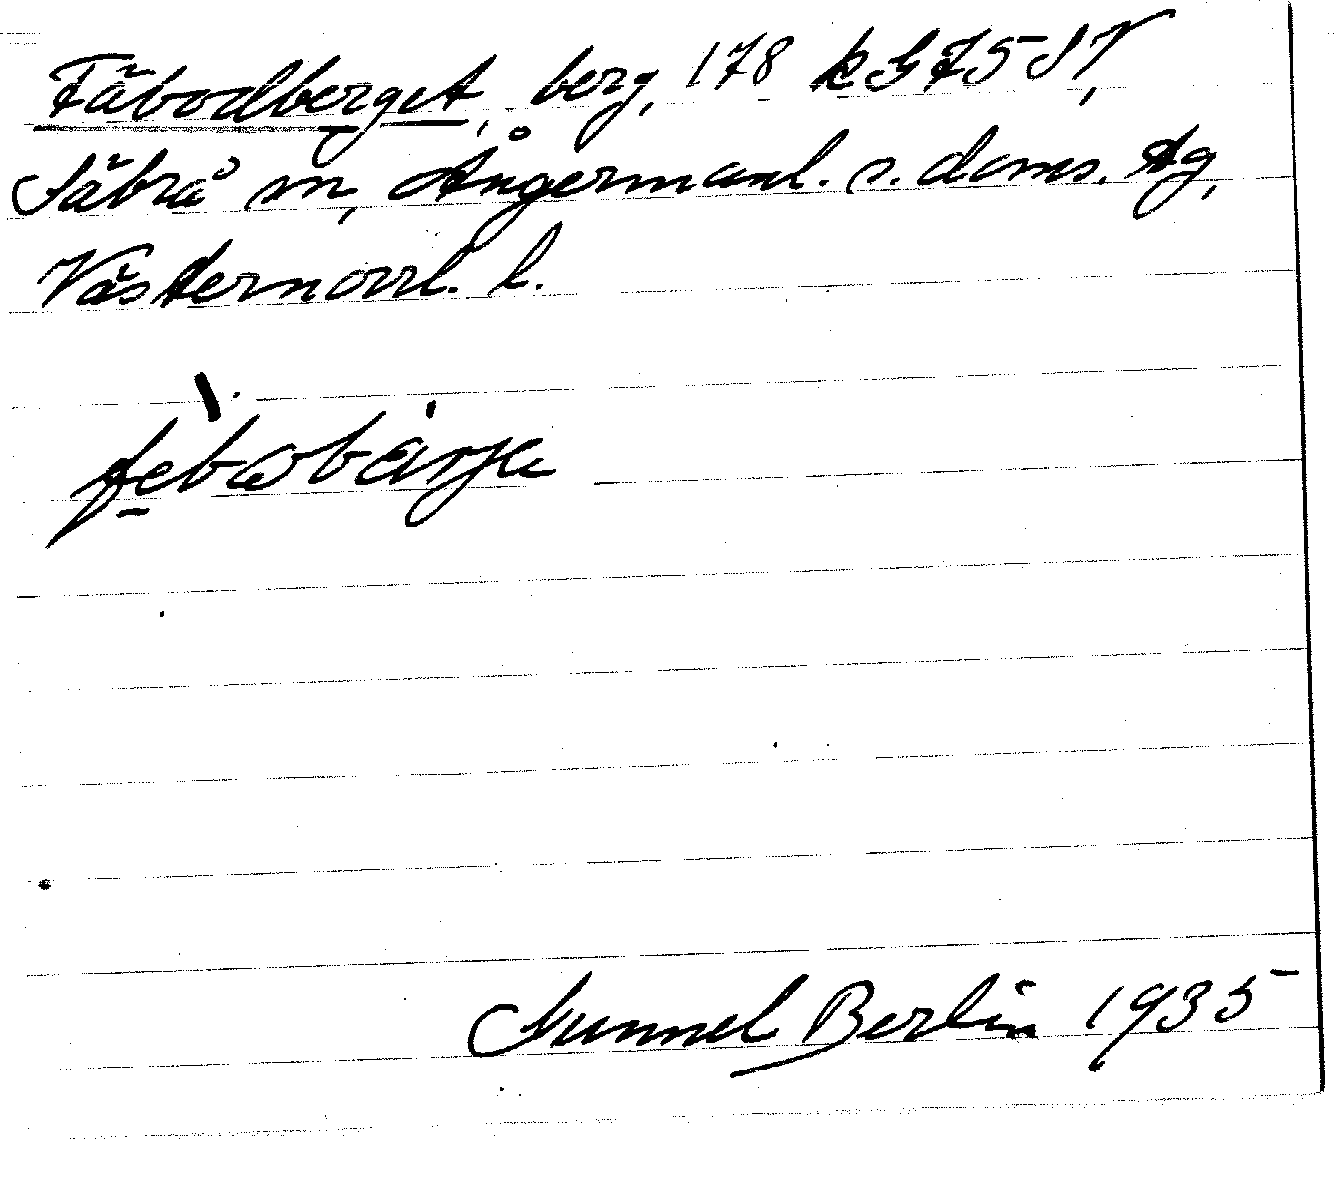 Fäbodberget, berg, 178 k G 75 SV,
Säbrå sn, Ångermanl. s. doms. tg,
Västernorrl. l.
Gunnel Berlin 1935